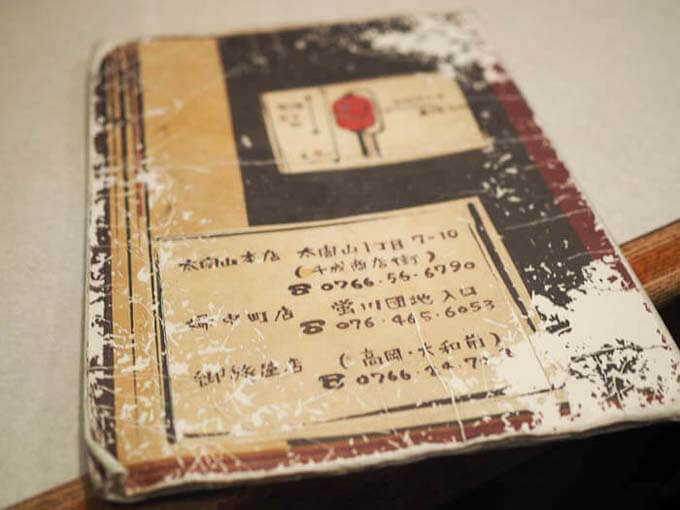 太閤山本店 太閤山1丁目7-10
(千成商店街)
☎ 0766・56・6790
婦中町店 螢川団地入口
☎ 076・465・6053
御旅屋店 (高岡・大和前)
☎ 0766